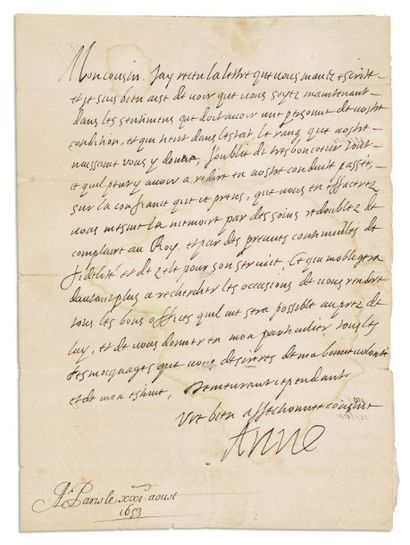 Mon cousin. Jay receu la lettre que vous mavez escritte
et je suis bien aise de voir que vous soyez maintenant
dans les sentimens que doit avoir une personne de vostre
condition, et qui tient dans lestat le rang que vostre
naissance vous y donne, J'oublie de tres bon coeur tout
ce quil peut y avoir a redire en vostre conduite passée,
sur la confiance que je prens, que vous en effacerez
vous mesme la memoire par des soins redoublez de
complaire au Roy, et par des preuves continuelles de
fidelité et de zele pour son service. Ce qui mobligera
dautant plus a rechercher les occasions de vous rendre
tous les bons offices quil me sera possible auprez de
luy, et de vous donner en mon particulier tous les
tesmoignages que vous desirerez de ma bonne volonté
et de mon estime, Demeurant cependant
Vre bien affectionnée cousine
Anne
A Paris le xxxi aoust
1653